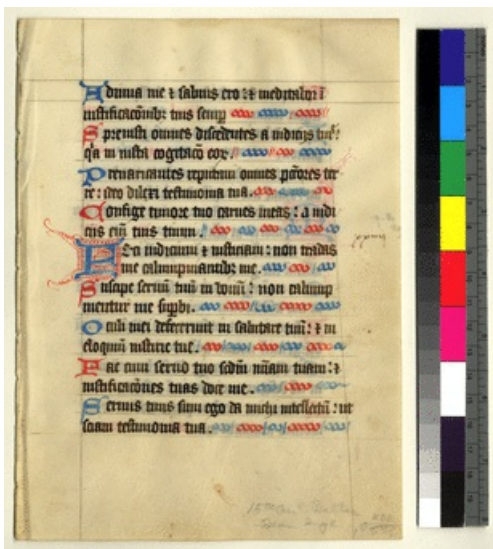 Adiuua me ⁊ saluus ero: ⁊ meditabor ĩ
iustificacõnibꝫ tuis semꝑ
Spreuisti omnes discedentes a iudicijs tuis:
q̃a iniusta cogitacõ eoꝝ.
Preuaricantes reputaui omnes pctõres ter
re: ideo dilexi testimonia tua.
Confige timore tuo carnes meas: a iudi
cijs eñi tuis timui.
Feci iudicium ⁊ iusticiam: non tradas
me calumpniantibꝫ me.
Suscipe seruũ tuũ in bonũ: non calump
nientur me suꝑbi.
Oculi mei defecerunt in salutare tuũ: ⁊ in
eloquiũ iusticie tue.
Fac cum seruo tuo scdm̃ mĩam tuam: ⁊
iustificacões tuas doce me.
Seruus tuus sum ego da michi intellectũ: ut
sciam testimonia tua.
15th Cent. Psalter